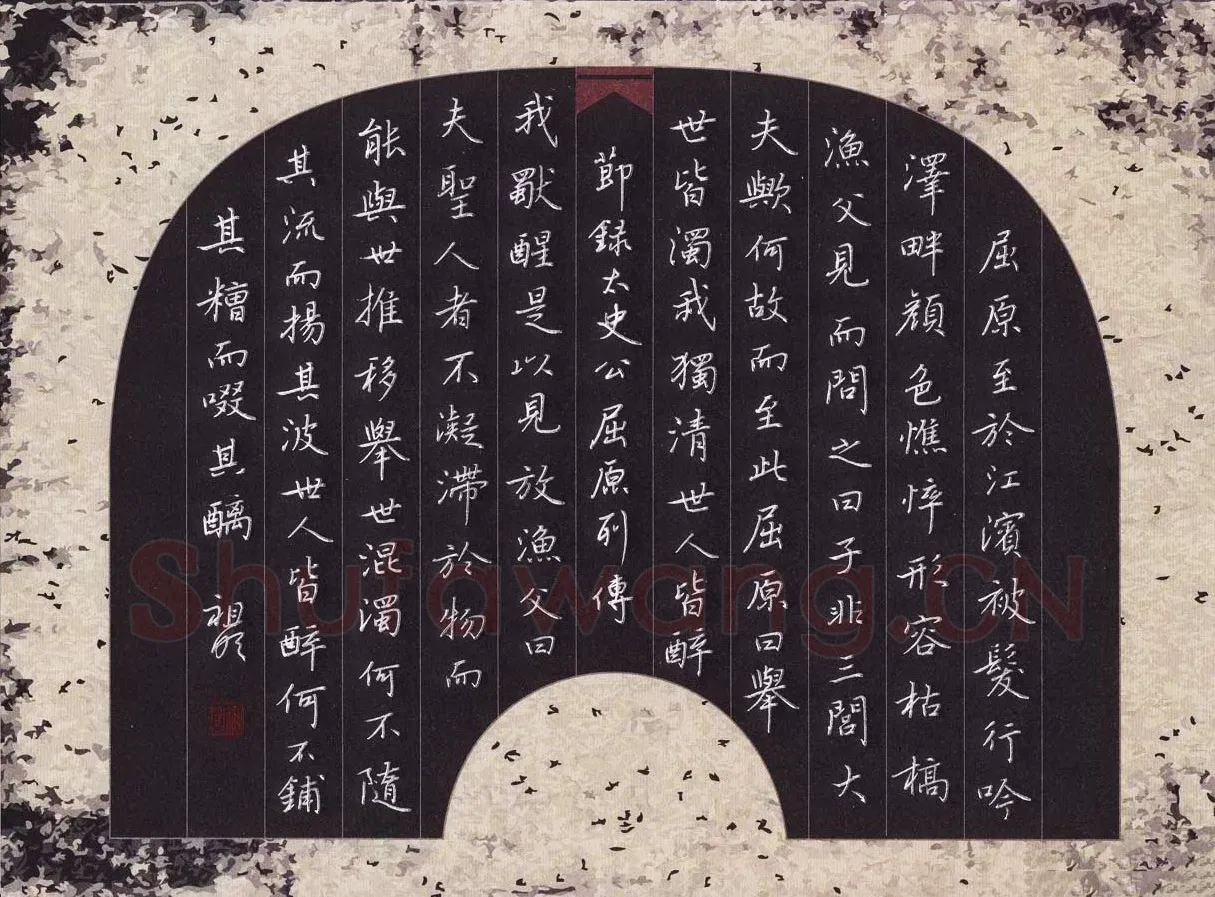 屈原至於江濱被髮行吟
澤畔顏色憔悴形容枯槁
漁父見而問之曰子非三閭大
夫歟何故而至此屈原曰舉
世皆濁我獨清世人皆醉
節錄太史公屈原列傳
我獨醒是以見放漁父曰
夫聖人者不凝滯於物而
能與世推移舉世混濁何不隨
其流而揚其波世人皆醉何不鋪
其糟而啜其醨
Shufawang.CN